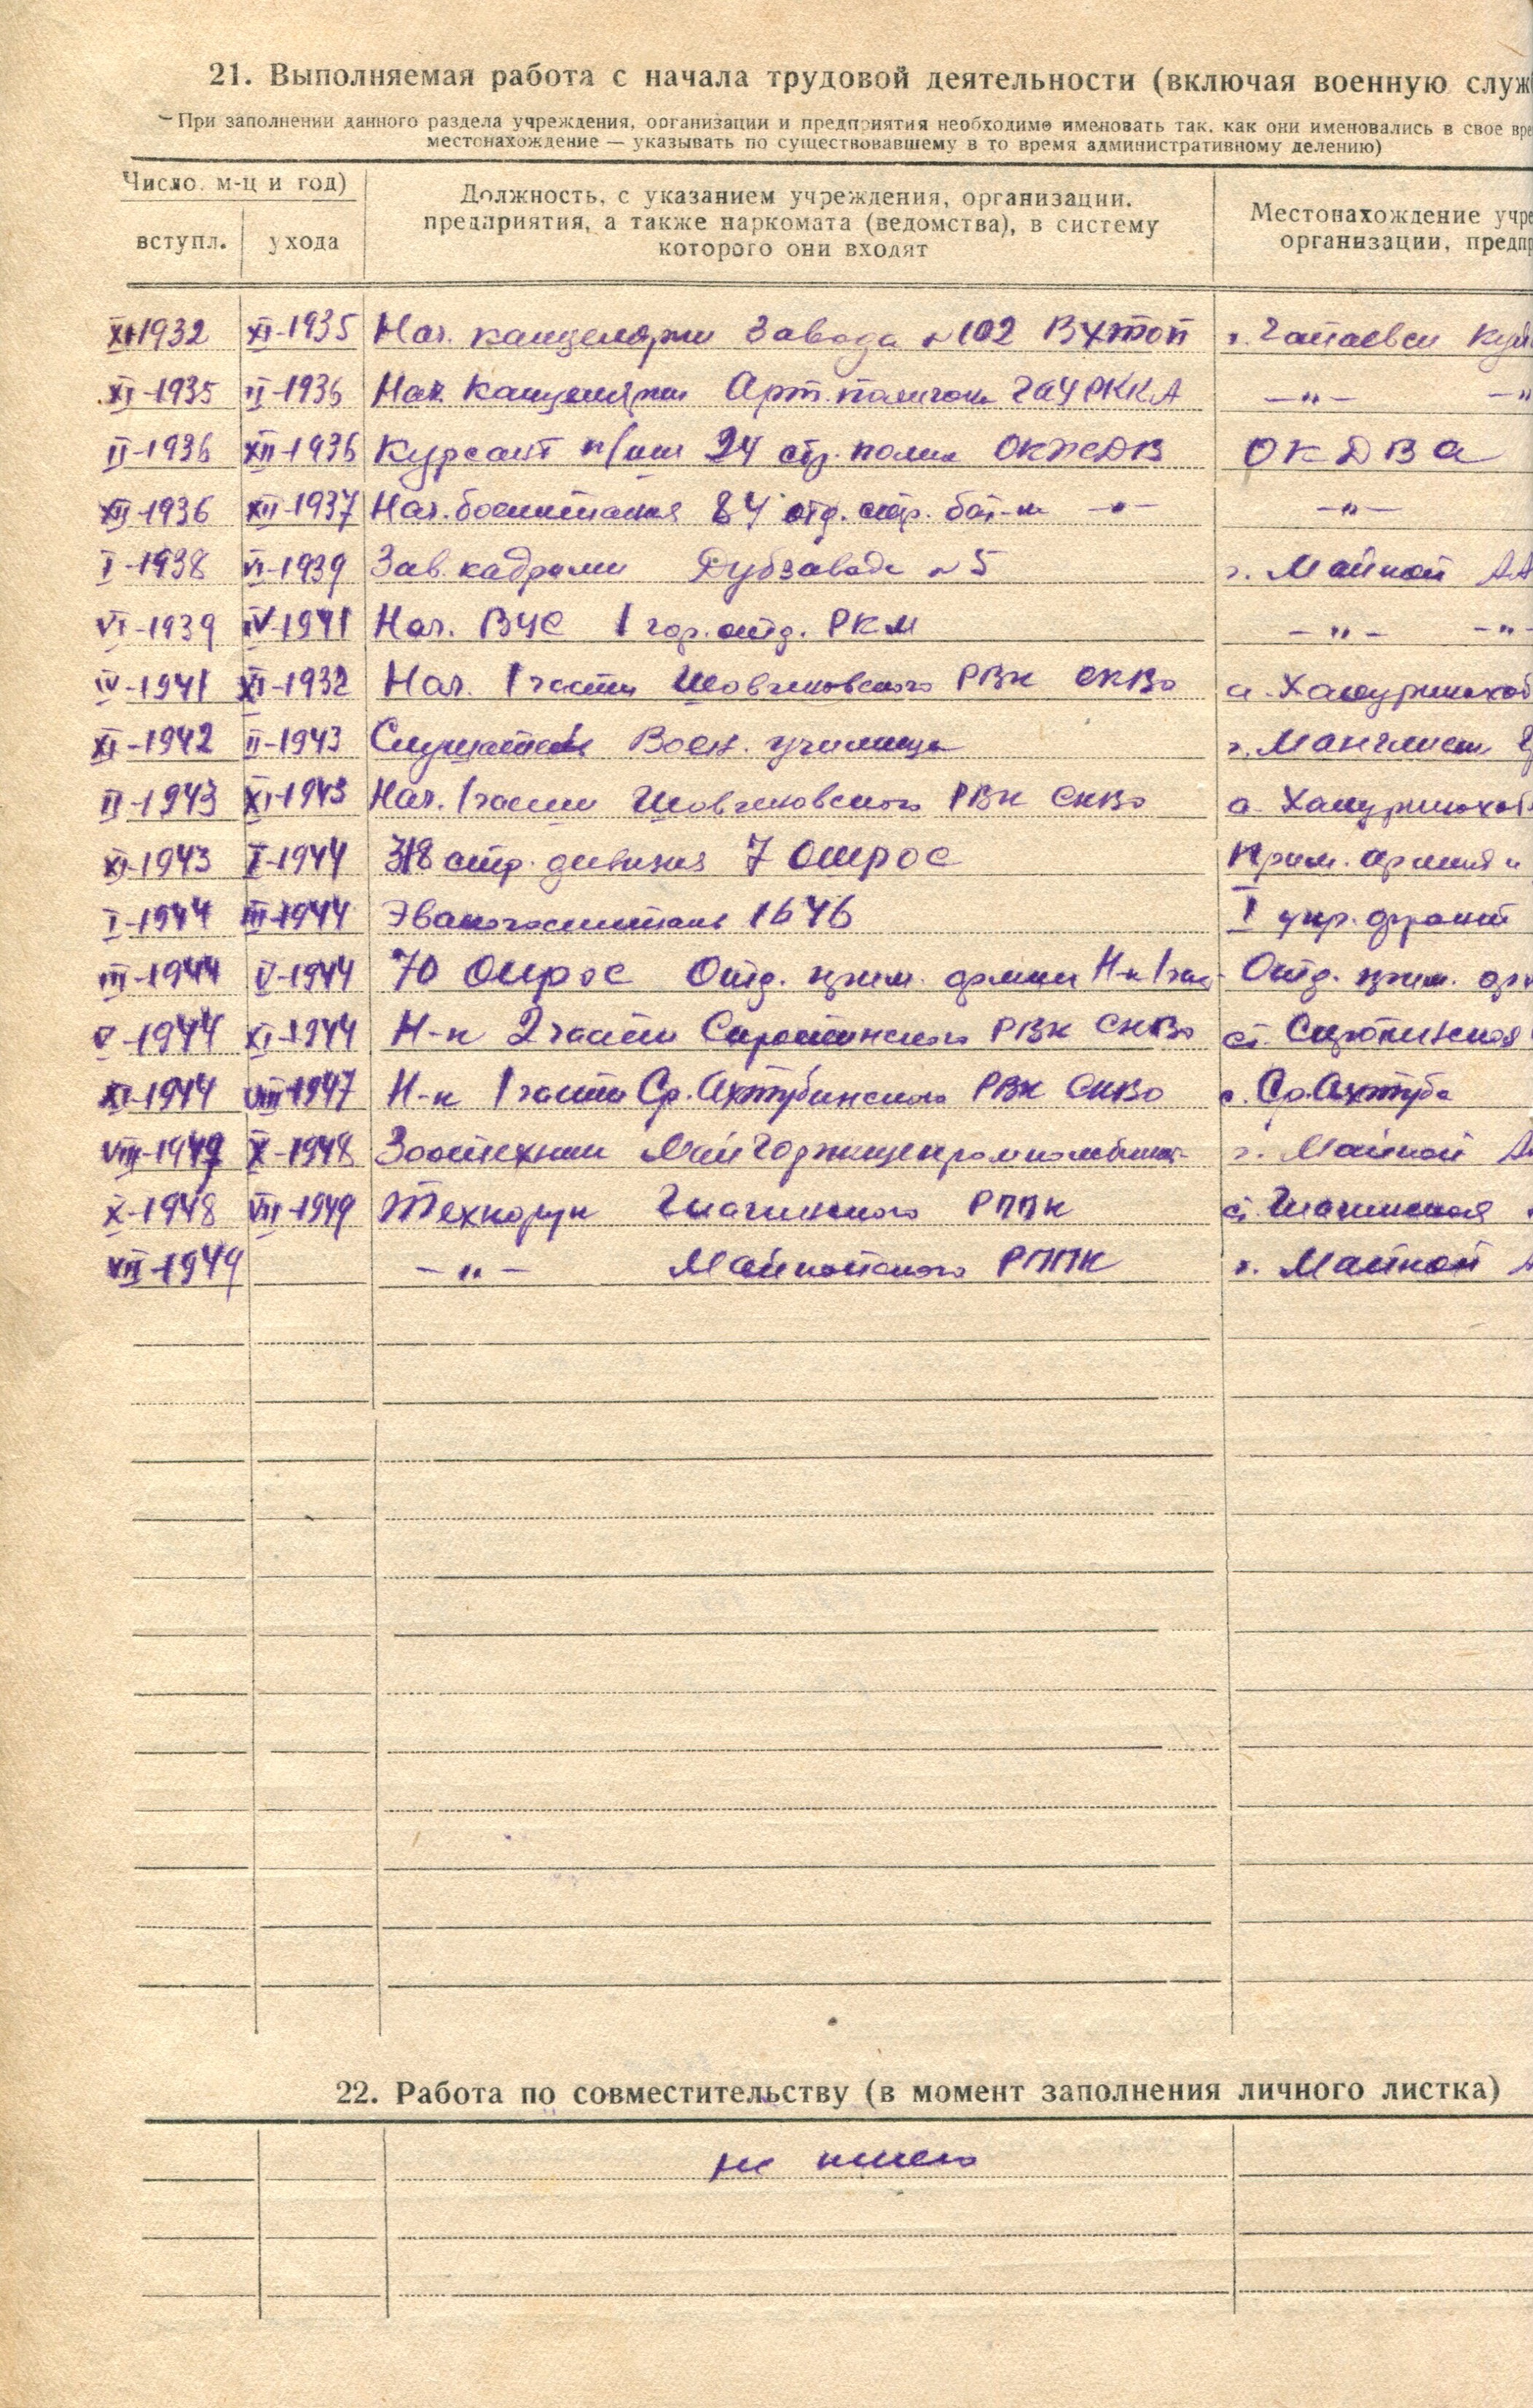 21. Выполняемая работа с начала трудовой деятельности (включая военную служ
При заполнении данного раздела учреждения, организации и предприятия необходимо именовать так, как они именовались в свое вре
местонахождение — указывать по существовавшему в то время административному делению)
Число, м-ц и год)
вступл. ухода
Должность, с указанием учреждения, организации,
предприятия, а также наркомата (ведомства), в систему
которого они входят
Местонахождение учре
организации, предпр
XI-1932 XI-1935 Нач. канцелярии Завода №102 Вхтоп г. Чапаевск Куй
XI-1935 II-1936 Нач. Канцелярии Арт. полигон ГАУ РККА —"— —"
II-1936 XII-1936 Курсант п/шк 24 стр. полка ОКЖДВ ОКДВА
XII-1936 XII-1937 Нач. боепитания 84 отд. стр. бат-н —"— —"—
I-1938 VI-1939 Зав. кадрами Дубзавода №5 г. Майкоп АА
VI-1939 IV-1941 Нач. ВУС 1 гор. отд. РКМ —"— —"—
IV-1941 XI-1932 Нач. 1 части Шовгеновского РВК СКВО а. Хакуринохаб
XI-1942 II-1943 Слушатель Воен. училища г. Манглис
II-1943 XI-1943 Нач. 1 части Шовгеновского РВК СКВО а. Хакуринохаб
XI-1943 I-1944 318 стр. дивизия 7 Ошрос Прим. армия и
I-1944 III-1944 Эвакогоспиталь 1646 I укр. фронт
III-1944 V-1944 70 Ошрос Отд. прим. армии Н-к 1 час Отд. прим. ар
V-1944 XI-1944 Н-к 2 части Сиротинского РВК СКВО ст. Сиротинская
XI-1944 VIII-1947 Н-к 1 части Ср. Ахтубинского РВК СКВО с. Ср. Ахтуба
VIII-1947 X-1948 Зоотехник Майгорпищепромкомбинат г. Майкоп А
X-1948 VII-1949 Технорук Гиагинского РППК ст. Гиагинская
VII-1949 —"— Майкопского РППК г. Майкоп А
22. Работа по совместительству (в момент заполнения личного листка)
не имею